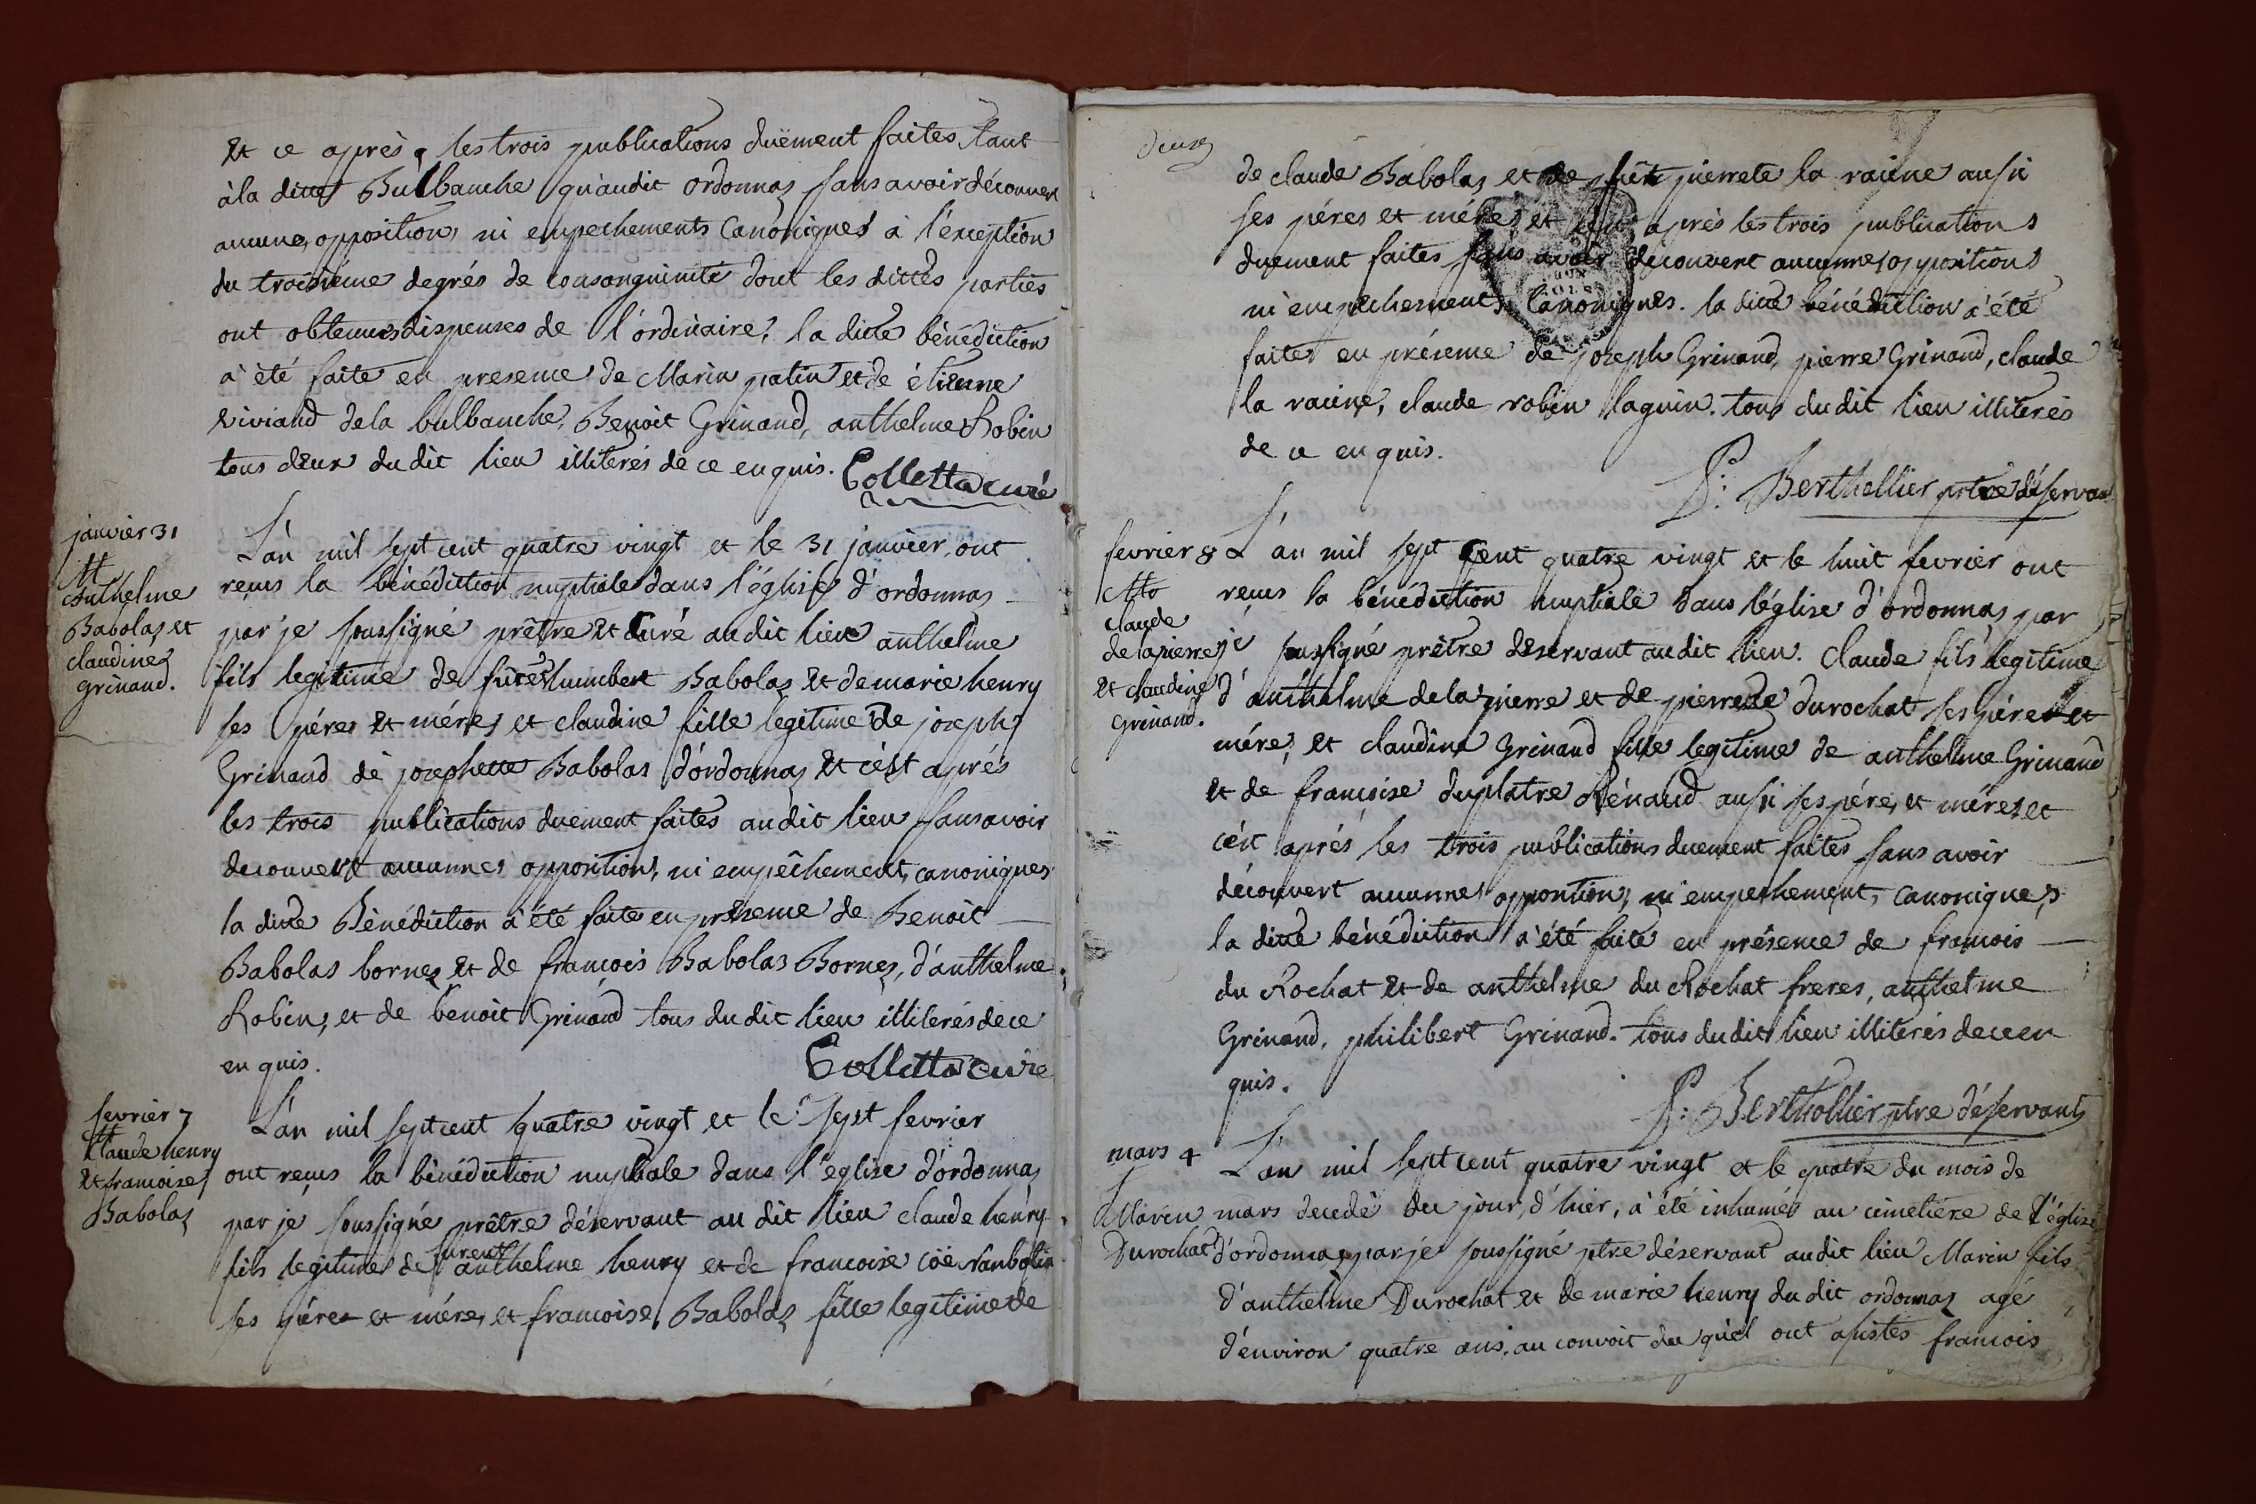 et ce après les trois publications duëment faites tant
à la ditte Bulbanche qu'audit ordonnaz sans avoir découvert
aucunes opposition, ni empechements Canoniques à l'éxception
du troisiéme degrés de consanguinité dont les dittes parties
ont obtenues dispenses de l'ordinaire, la ditte bénédiction
à été faite en presence de Marin patin et de étienne
viviand de la bulbanche, Benoit Grinand, anthelme Robin
tous deux du dit lieu illiterés de ce enquis. Colletta curé
janvier 31
M
Anthelme
Babolaz et
claudine
grinand.
L'an mil sept cent quatre vingt et le 31 janvier, ont
reçus la bénédiction nuptiale dans l'église d'ordonnaz
par je soussigné prêtre et Curé audit lieu anthelme
fils legitime de humbert Babolaz et de marie henry
ses péres et méres et claudine fille legitime de joseph
Grinand de josephette Babolas d'ordonnaz et c'ést aprés
les trois publications duement faites audit lieu sans avoir
decouvert aucunnes opposition, ni empêchement, canoniques
la ditte Bénédiction à été faite en présence de Benoit
Babolas bornez et de francois Babolas Bornez, d'anthelme
Robin, et de benoit Grinand tous du dit lieu illiterés de ce
en quis. Colletta curé
fevrier 7
M
Claude henry
et francoise
Babolaz
L'an mil sept cent quatre vingt et le sept fevrier
ont reçus la bénédiction nuptiale dans l'eglise d'ordonnaz
par je soussigné prêtre déservant au dit lieu claude henry
fils legitime de furent anthelme henry et de francoise
ses péres et méres, et francoise Babolaz fille legitime de
deux
de claude Babolaz et de pierrete la racine aussi
ses péres et méres et après les trois publications
duement faites sans avoir decouvert aucunnes oppositions
ni empechements Canoniques. la ditte bénédiction a été
faites en présence de joseph Grinand, pierre Grinand, claude
la racine, claude robin laguin. tous du dit lieu illiterés
de ce en quis.
P: Berthollier prtre déservant
fevrier 8
M
claude
de lapierre
et claudine
grinand.
L'an mil sept Cent quatre vingt et le huit fevrier ont
reçus la bénédiction nuptiale dans l'église d'ordonnaz par
je soussigné prêtre deservant audit lieu. Claude fils legitime
d'anthelme de la pierre et de pierrette durochat ses péres et
mére, et claudine Grinand fille legitime de anthelme Grinand
et de francoise duplatre Rénaud aussi ses pére, et méres et
c'ést aprés les trois publications duement faites sans avoir
découvert aucunnes opposition, ni empechement, canonique,
la ditte bénédiction a été faite en présence de francois
du Rochat et de anthelme du Rochat freres, anthelme
Grinand, philibert Grinand. tous du dit lieu illiterés de ce en
quis.
P: Berthollier ptre déservant
mars 4
Marin
Durochat
L'an mil sept cent quatre vingt et le quatre du mois de
mars decedé du jour, d'hier, à été inhumés au cimetiére de l'église
d'ordonnaz par je soussigné ptre déservant audit lieu Marin fils
d'anthelme Durochat et de marie henry du dit ordonnaz agé
d'énviron quatre ans, au convoit du quel ont assistés francois